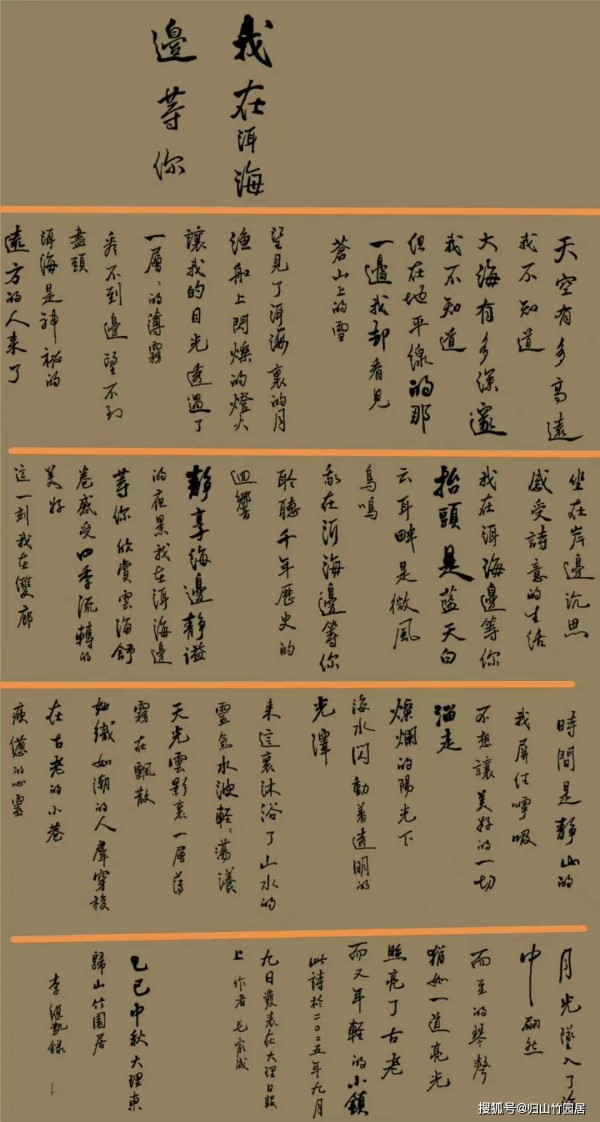 我在洱海
邊等你
天空有多高遠
我不知道
大海有多深邃
我不知道
但在地平線的那
一邊我卻看見
蒼山上的雪
望見了洱海裏的月
漁船上閃爍的燈火
讓我的目光透過了
一層々的薄霧
看不到邊望不到
盡頭
洱海是神祕的
遠方的人來了
坐在岸邊沉思
感受詩意的生活
我在洱海邊等你
抬頭是蓝天白
云耳畔是微風
鳥鳴
我在洱海邊等你
聆聽千年歷史的
迴響
靜享海邊靜谧
的夜景我在洱海邊
等你欣賞雲海舒
卷感受四季流轉的
美好
這一刻我在雙廊
時間是靜止的
我屏住呼吸
不想讓美好的一切
溜走
燦爛的陽光下
海水闪動着透明的
光澤
来這裏沐浴了山水的
靈氣水波輕々蕩漾
天光雲影裏一層薄
霧在飄散
如織如潮的人羣穿梭
在古老的小巷
疲憊的心靈
月光墜入了海
中翩然
而至的琴聲
猶如一道亮光
照亮了古老
而又年輕的小鎮
此詩於二〇二五年九月
九日發表在大理日報
上作者毛家成
乙巳中秋大理東
歸山竹園居
李繼凱録
搜狐号@归山竹园居